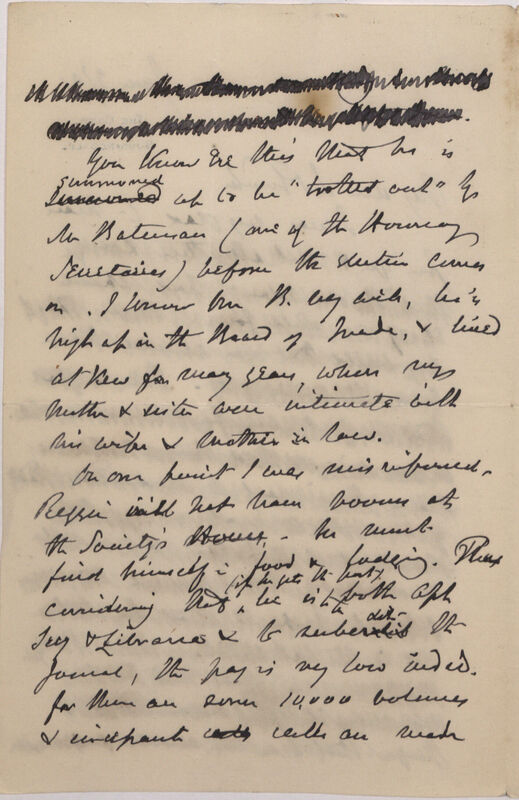 You know ere this that he is
summoned
up to be "trotted out" by
Mr Bateman (one of the Honorary
Secretaries) before the election comes
on. I know him B. very well, he is
high up in the Board of Trade, & lived
at Kew for many years, where my
mother & sister were intimate with
his wife & mother in law.
On one point I was misinformed.
Reggie will not have rooms at
the Society's House. he must
find himself in food & lodging. Thus
(if he gets the post)
considering that he is to both Asst
Secy & Librarian & to sub-edit the
Journal, the pay is very low indeed.
for there are some 10,000 volumes
& incessant calls are made